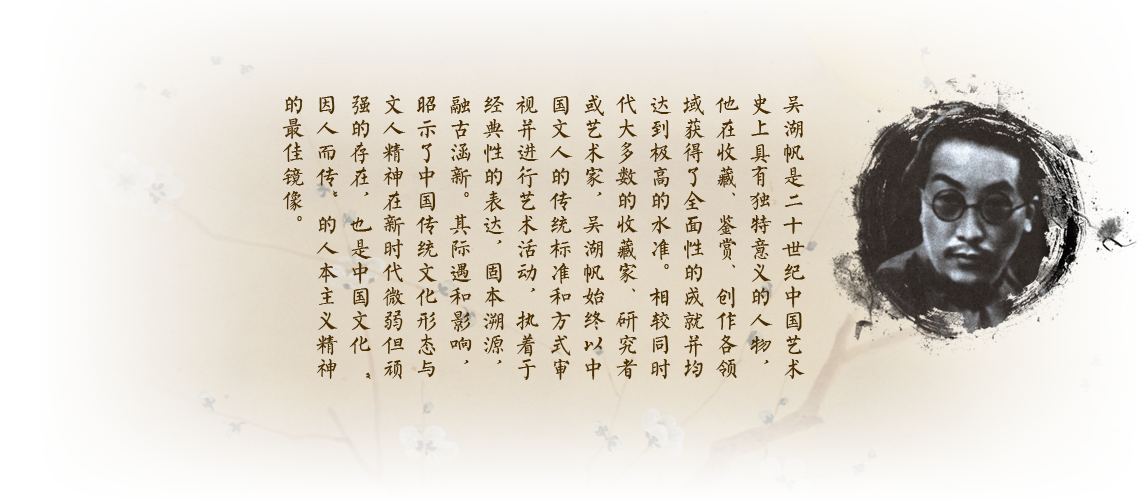 吴湖帆是二十世纪中国艺术
史上具有独特意义的人物，
他在收藏、鉴赏、创作各领
域获得了全面性的成就并均
达到极高的水准。相较同时
代大多数的收藏家、研究者
或艺术家，吴湖帆始终以中
国文人的传统标准和方式审
视并进行艺术活动，执着于
经典性的表达，固本溯源，
融古涵新。其际遇和影响，
昭示了中国传统文化形态与
文人精神在新时代微弱但顽
强的存在，也是中国文化〝
因人而传〞的人本主义精神
的最佳镜像。